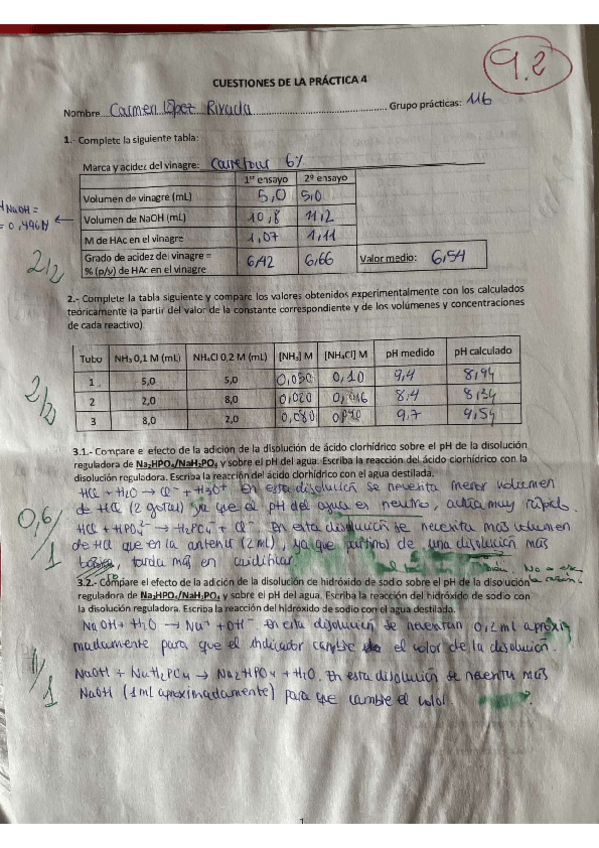 9.2
CUESTIONES DE LA PRÁCTICA 4
Nombre Carmen López Rivada Grupo prácticas: 116
1.- Complete la siguiente tabla:
Marca y acidez del vinagre: Carrefour 6%
1er ensayo 2º ensayo
Volumen de vinagre (mL) 5,0 5,0
NaOH =
Volumen de NaOH (mL) 10,8 11,2
= 0,496N
M de HAc en el vinagre 1,07 1,11
Grado de acidez del vinagre =
% (p/v) de HAc en el vinagre 6,42 6,66 Valor medio: 6,54
2/2
2.- Complete la tabla siguiente y compare los valores obtenidos experimentalmente con los calculados
teóricamente (a partir del valor de la constante correspondiente y de los volúmenes y concentraciones
de cada reactivo).
Tubo NH₃ 0,1 M (mL) NH₄Cl 0,2 M (mL) [NH₃] M [NH₄Cl] M pH medido pH calculado
1 5,0 5,0 0,050 0,10 9,4 8,94
2 2,0 8,0 0,020 8,4 8,34
3 8,0 2,0 0,080 9,7 9,54
2/2
3.1.- Compare e efecto de la adición de la disolución de ácido clorhídrico sobre el pH de la disolución
reguladora de Na₂HPO₄/NaH₂PO₄ y sobre el pH del agua. Escriba la reacción del ácido clorhídrico con la
disolución reguladora. Escriba la reacción del ácido clorhídrico con el agua destilada.
HCl + H₂O → Cl⁻ + H₃O⁺ En esta disolución se necesita menor volumen
de HCl (2 gotas) ya que el pH del agua es neutro, actúa muy rápido.
HCl + HPO₄²⁻ → H₂PO₄⁻ + Cl⁻. En esta disolución se necesita más volumen
de HCl que en la anterior (2 ml), ya que partimos de una disolución más
básica, tarda más en acidificar
0,6/1
3.2.- Compare el efecto de la adición de la disolución de hidróxido de sodio sobre el pH de la disolución
reguladora de Na₂HPO₄/NaH₂PO₄ y sobre el pH del agua. Escriba la reacción del hidróxido de sodio con
la disolución reguladora. Escriba la reacción del hidróxido de sodio con el agua destilada.
NaOH + H₂O → Na⁺ + OH⁻. En esta disolución se necesitan 0,2 ml aproxi
madamente para que el indicador cambie el color de la disolución.
NaOH + NaH₂PO₄ → Na₂HPO₄ + H₂O. En esta disolución se necesita más
NaOH (1 ml aproximadamente) para que cambie el color.
1/1
1